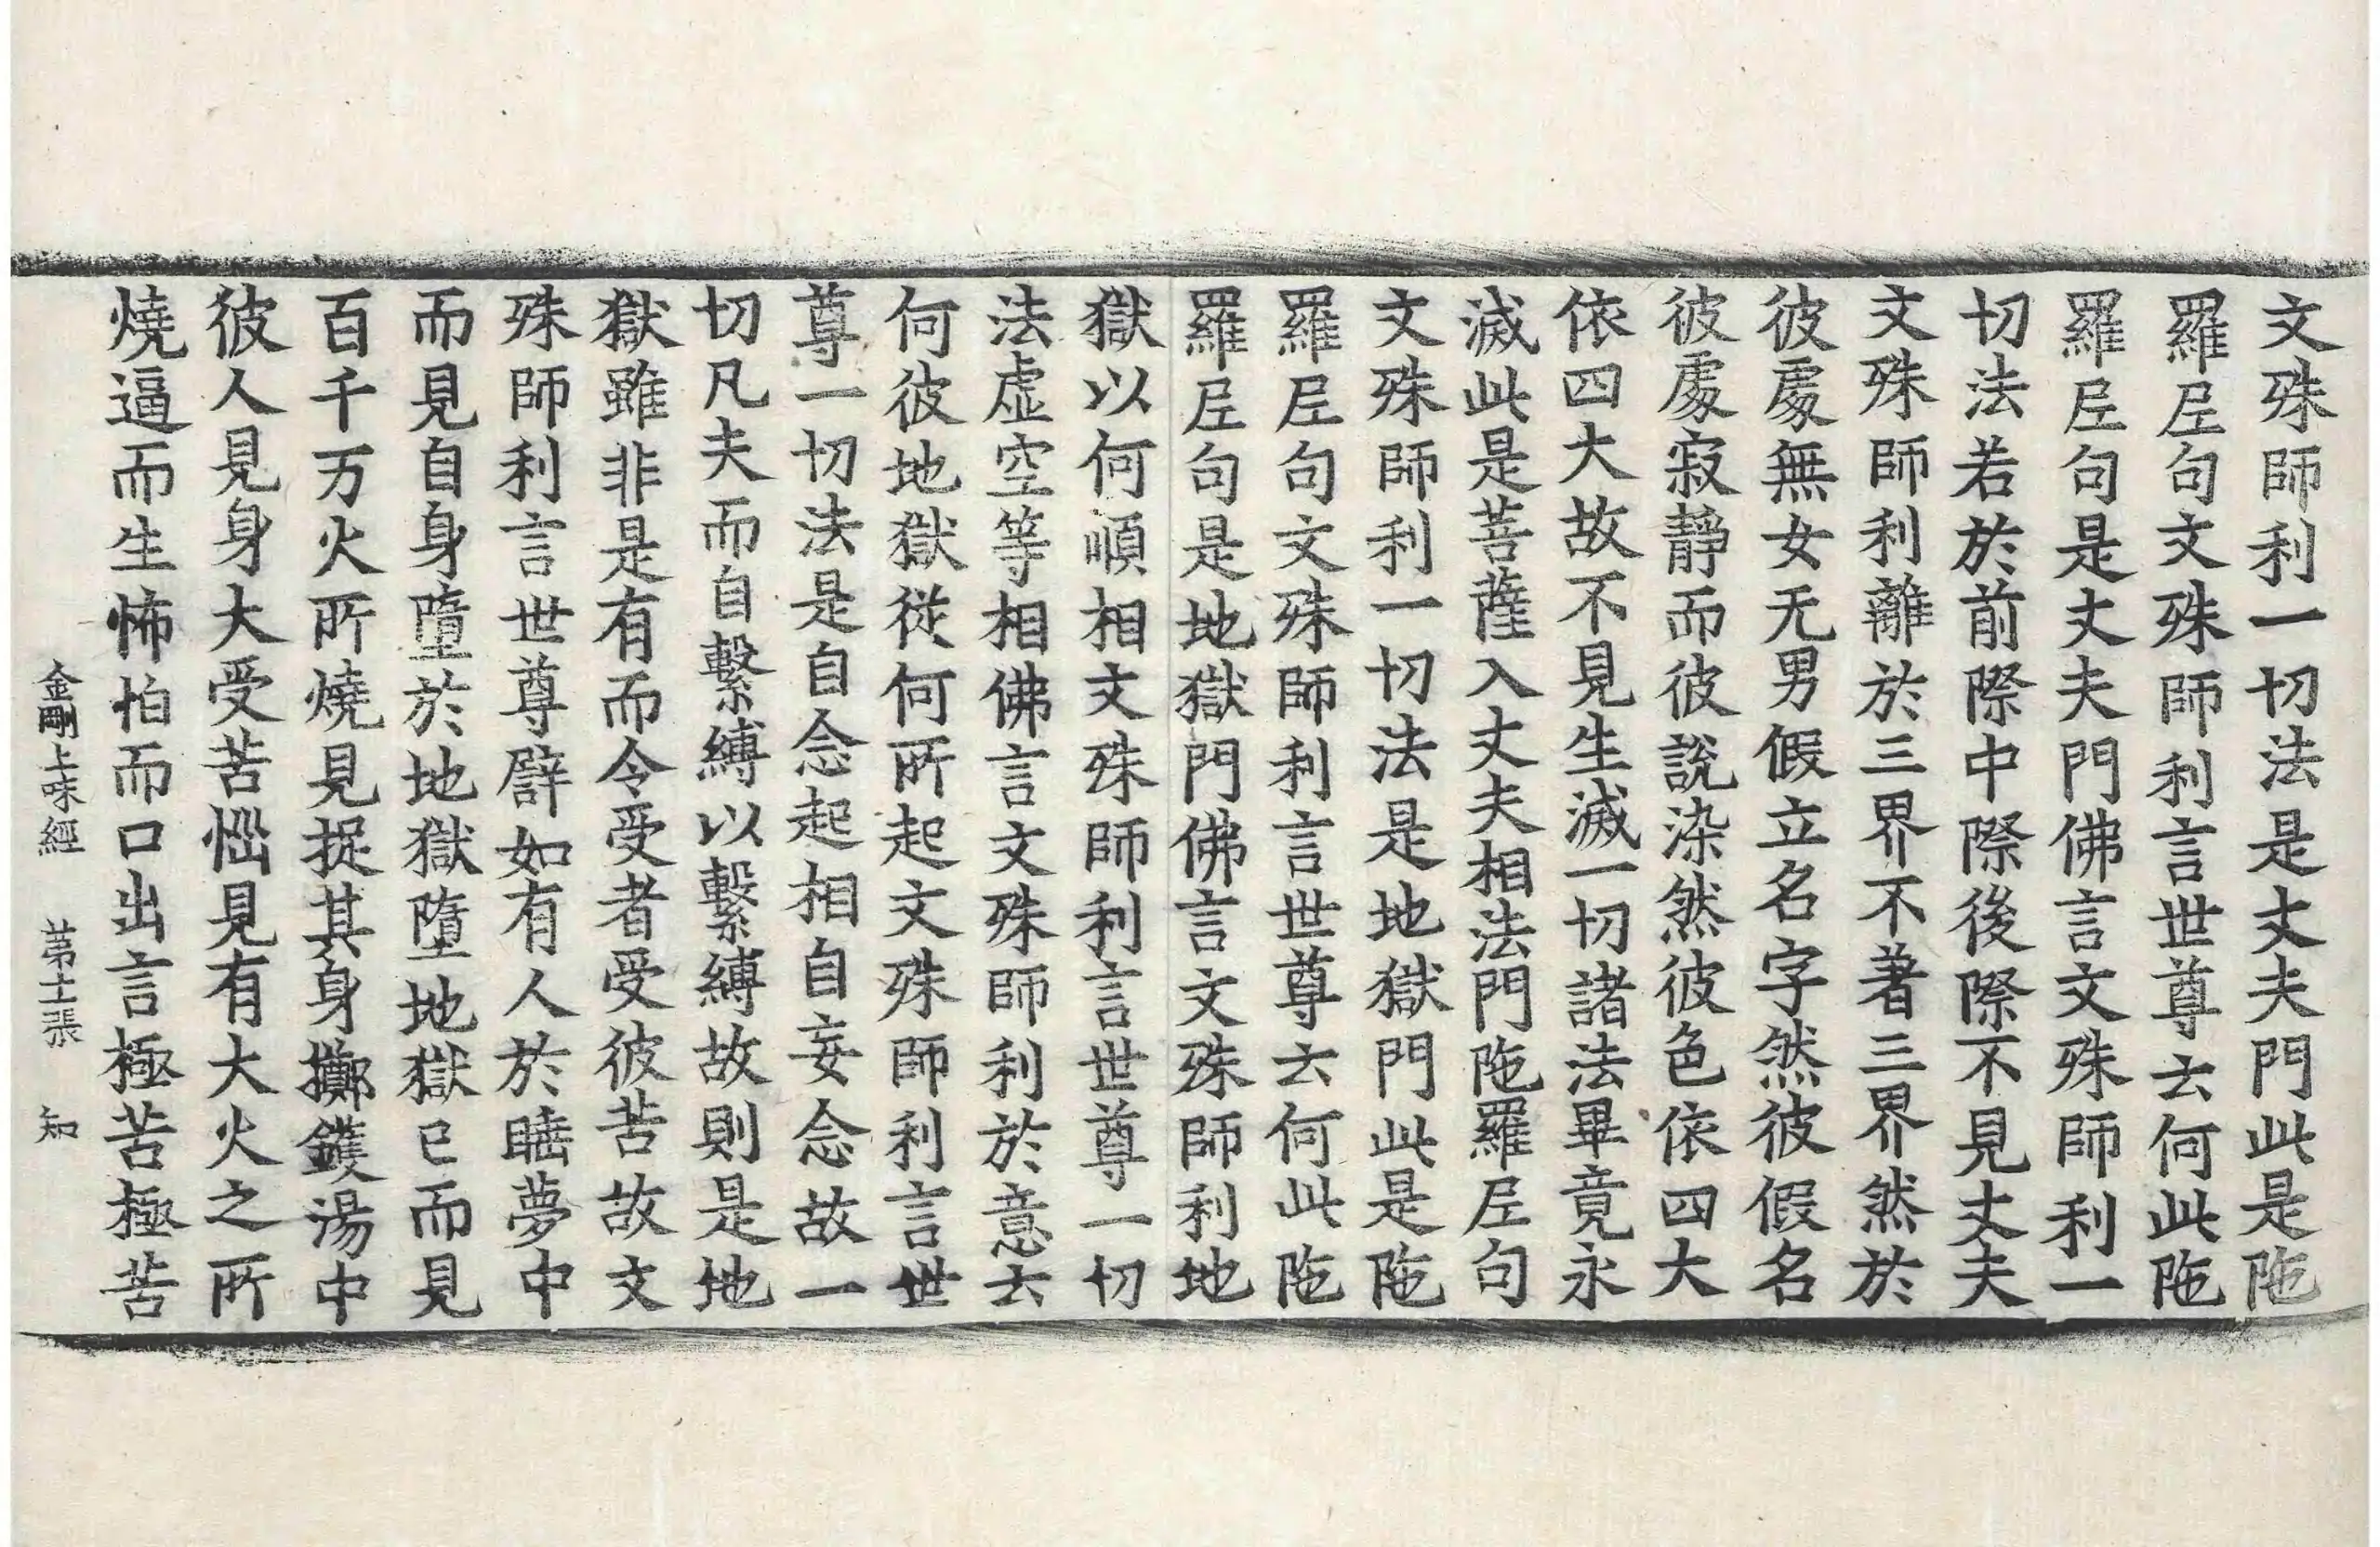 文殊師利一切法是丈夫門此是陁
羅𡰱句文殊師利言世尊云何此陁
羅𡰱句是丈夫門佛言文殊師利一
切法若於前際中際後際不見丈夫
文殊師利離於三界不著三界然於
彼處無女无男假立名字然彼假名
彼處寂靜而彼說染然彼色依四大
依四大故不見生滅一切諸法畢竟永
滅此是菩薩入丈夫相法門陁羅𡰱句
文殊師利一切法是地獄門此是陁
羅𡰱句文殊師利言世尊云何此陁
羅𡰱句是地獄門佛言文殊師利地
獄以何順相文殊師利言世尊一切
法虛空等相佛言文殊師利於意云
何彼地獄從何所起文殊師利言世
尊一切法是自念起相自妄念故一
切凡夫而自繫縛以繫縛故則是地
獄雖非是有而令受者受彼苦故文
殊師利言世尊譬如有人於睡夢中
而見自身墮於地獄墮地獄已而見
百千万火所燒見捉其身擲鑊湯中
彼人見身大受苦惱見有大火之所
燒逼而生怖怕而口出言極苦極苦
金剛上味經　苐十二張　知